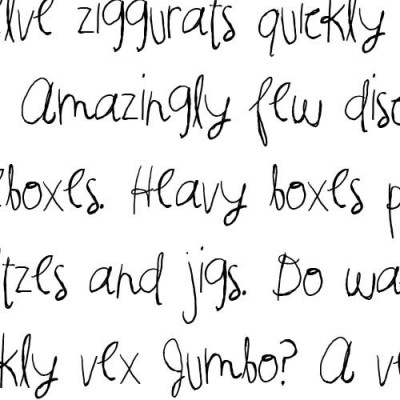 lve ziggurats quickly
Amazingly few disc
eboxes. Heavy boxes p
tzes and jigs. Do wa
kly vex Jumbo? A ve